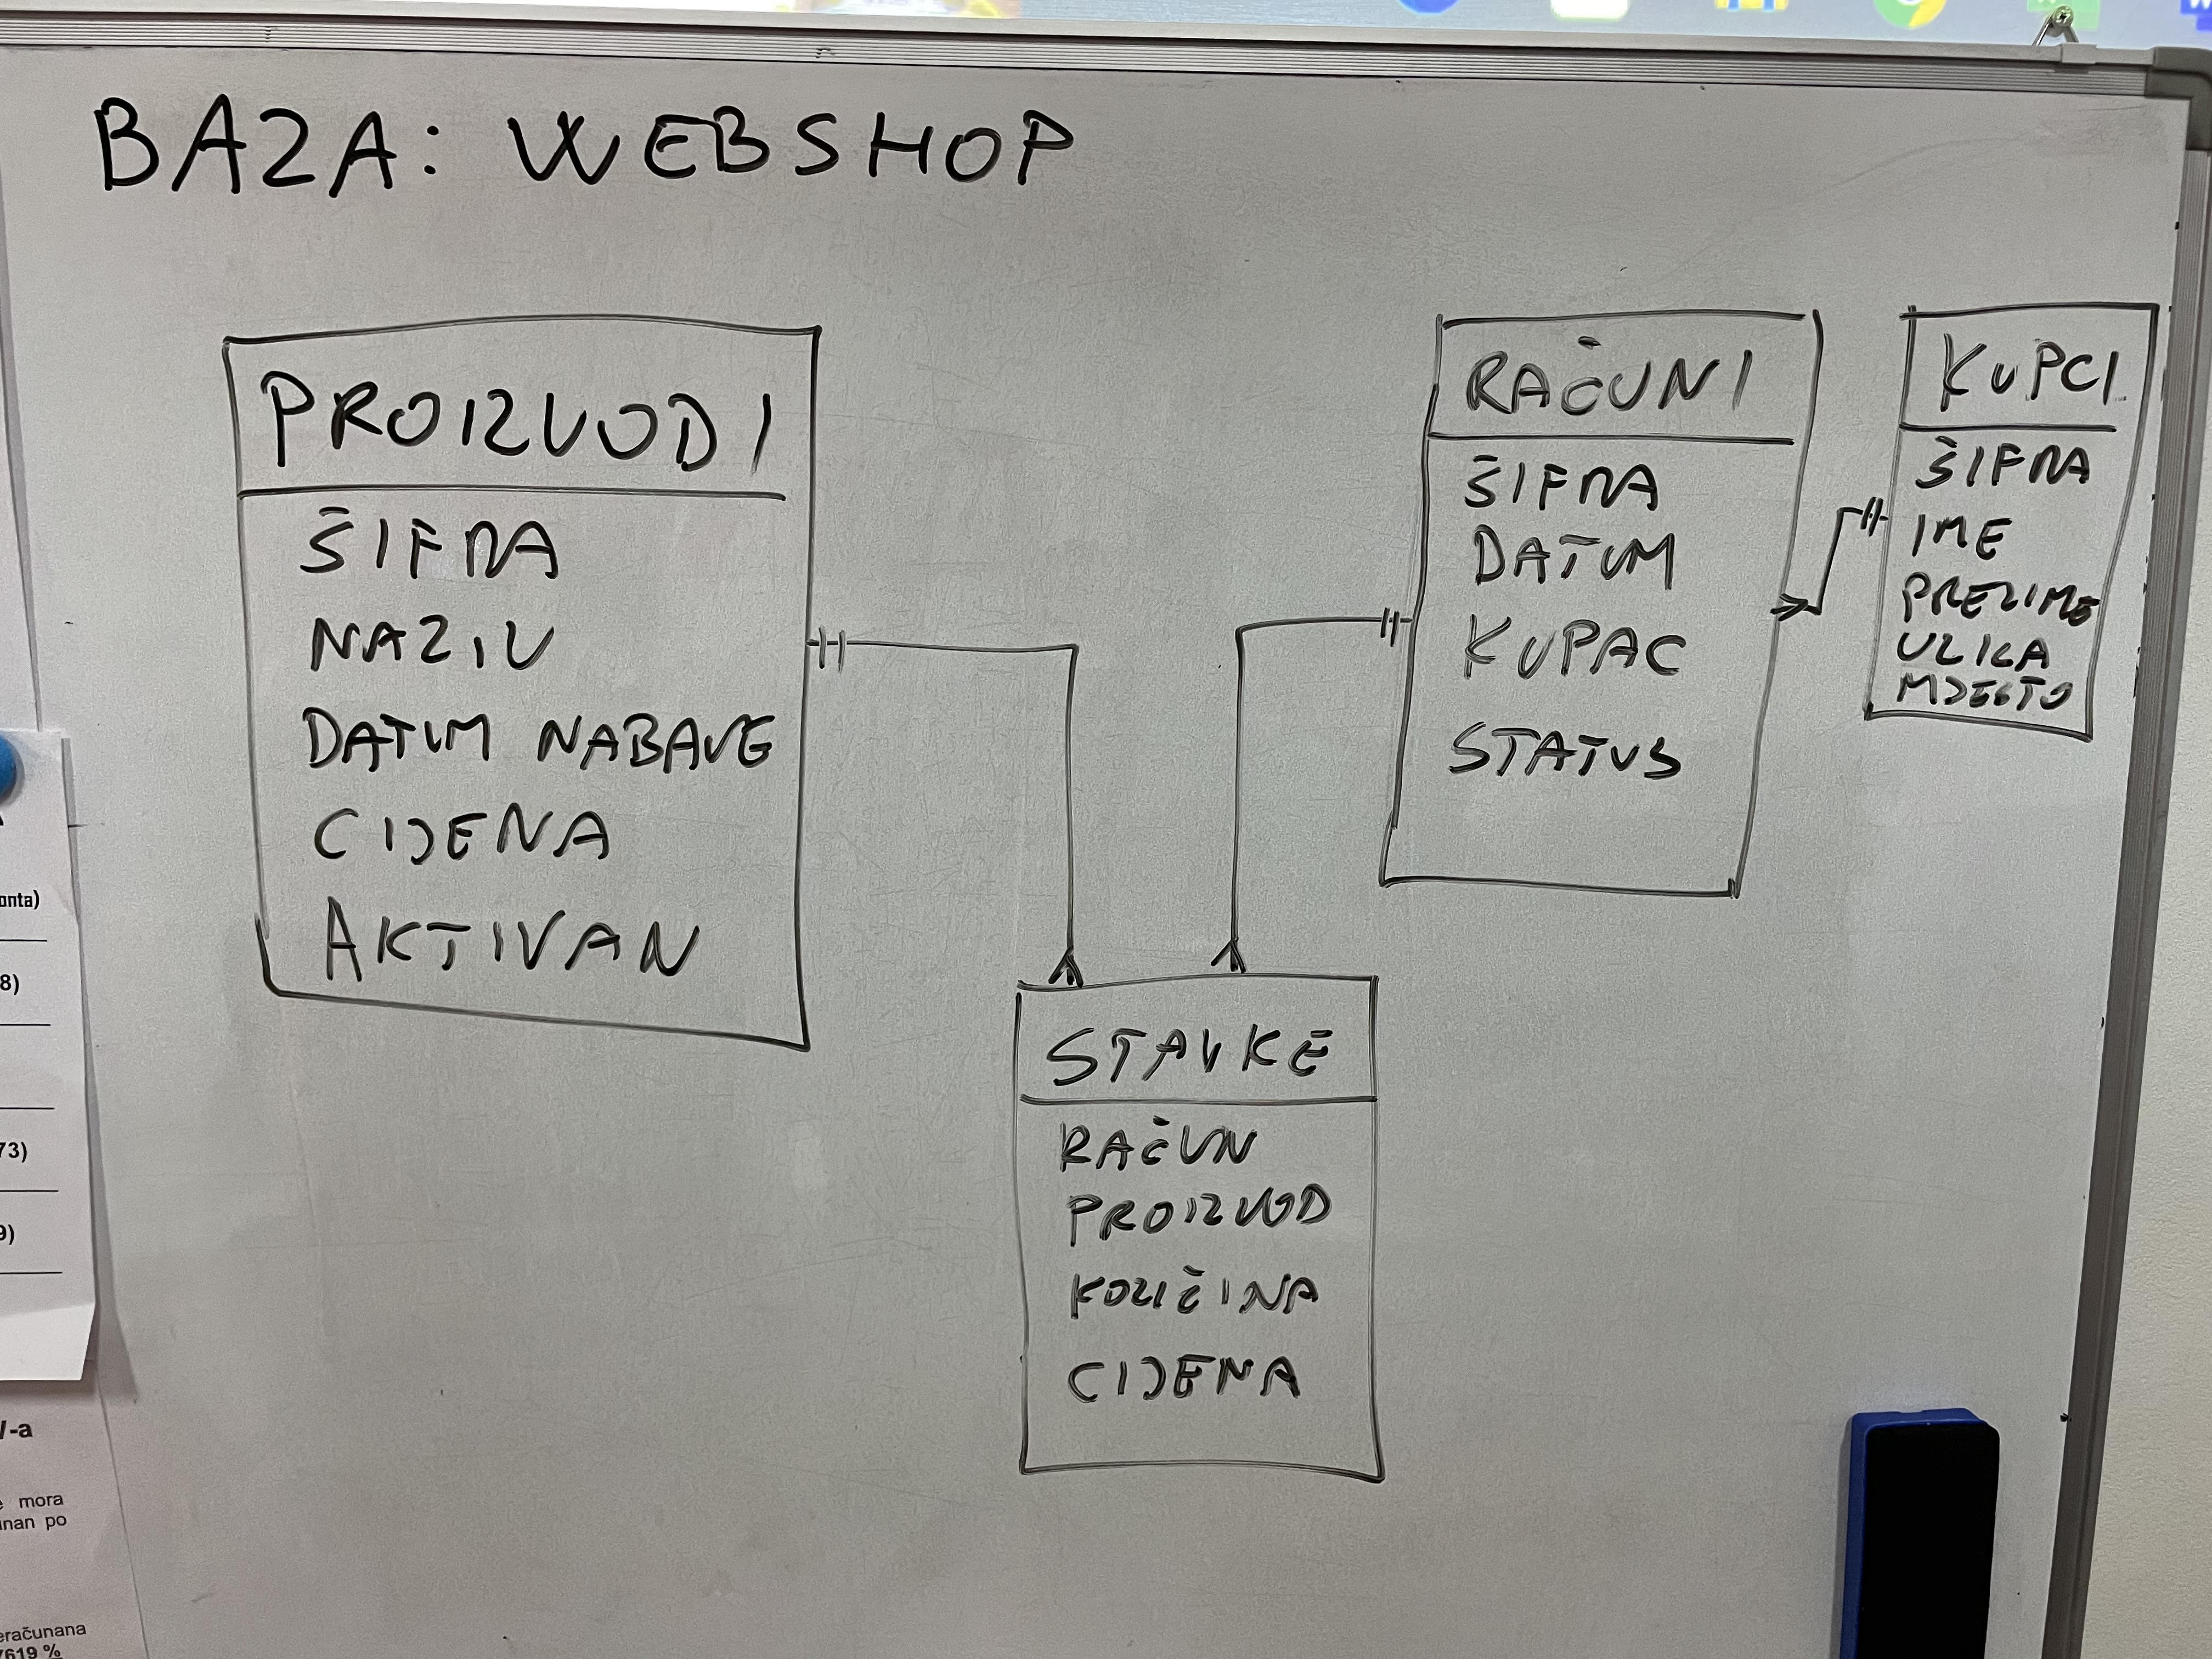 BAZA: WEBSHOP
PROIZVODI
ŠIFRA
NAZIV
DATUM NABAVE
CIJENA
AKTIVAN
RAČUNI
ŠIFRA
DATUM
KUPAC
STATUS
KUPCI
ŠIFRA
IME
PREZIME
ULICA
MJESTO
STAVKE
RAČUN
PROIZVOD
KOLIČINA
CIJENA
onta)
8)
73)
9)
V-a
mora
po
7619 %